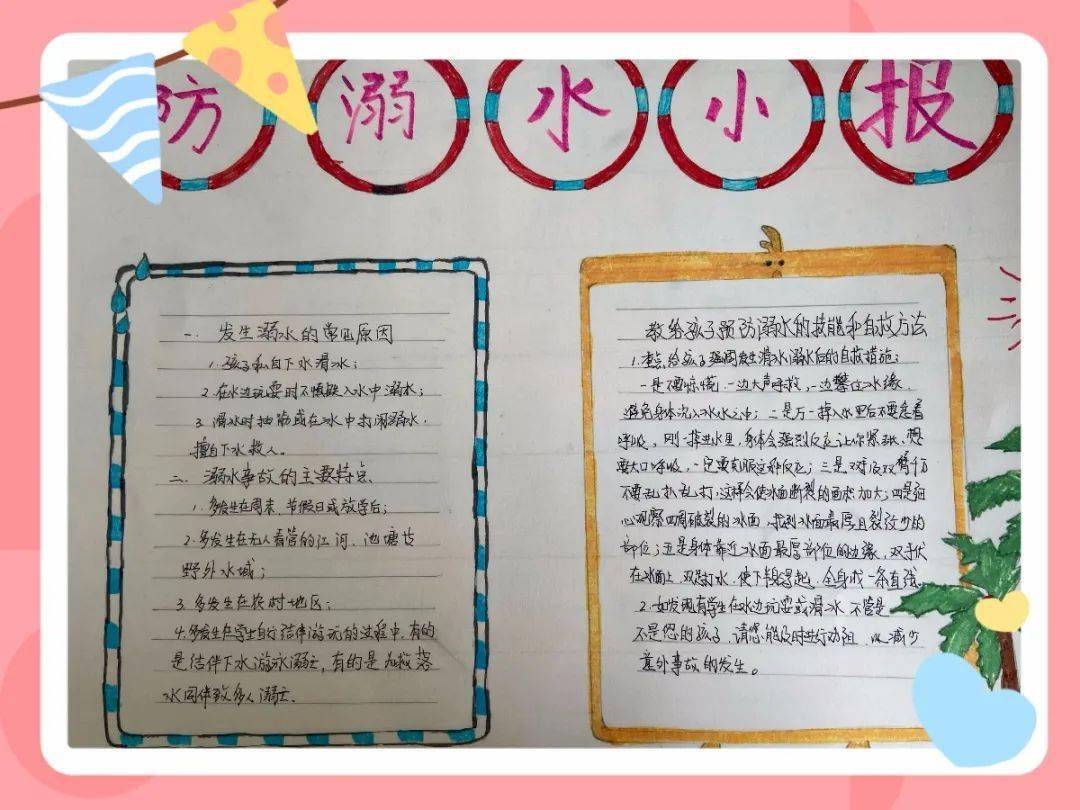 防溺水小报
一. 发生溺水的常见原因
1. 孩子私自下水滑水;
2. 在水边玩耍时不慎跌入水中溺水;
3. 滑水时抽筋或在水中打闹溺水,
擅自下水救人。
二、溺水事故的主要特点
1. 多发生在周末、节假日或放学后;
2. 多发生在无人看管的江河、池塘
野外水域;
3. 多发生在农村地区;
4. 多发生在学生自行结伴游玩的过程中,有的
是结伴下水游泳溺亡,有的是为救落
水同伴致多人溺亡.
教给孩子预防溺水的技能和自救方法
1. 重点给孩子强调发生滑水溺水后的自救措施:
一是不要惊慌,一边大声呼救,一边攀住冰缘,
避免身体沉入冰水之中;二是万一掉入水里后不要急着
呼吸,刚一掉进水里,身体会强烈反应让你紧张,想
要大口呼吸,一定要克服这种反应;三是双脚双臂千万
不要乱扑乱打,这样会使冰面断裂的面积加大;四是细
心观察四周破裂的冰面,找到冰面最厚且裂纹少的
部位;五是身体靠近冰面最厚部位的边缘,双手伏
在冰面上,双足打水,使下身浮起,全身成一条直弦.
2. 如发现有学生在水边玩耍或滑水 不管是
不是您的孩子,请您能及时进行劝阻,以减少
意外事故的发生。